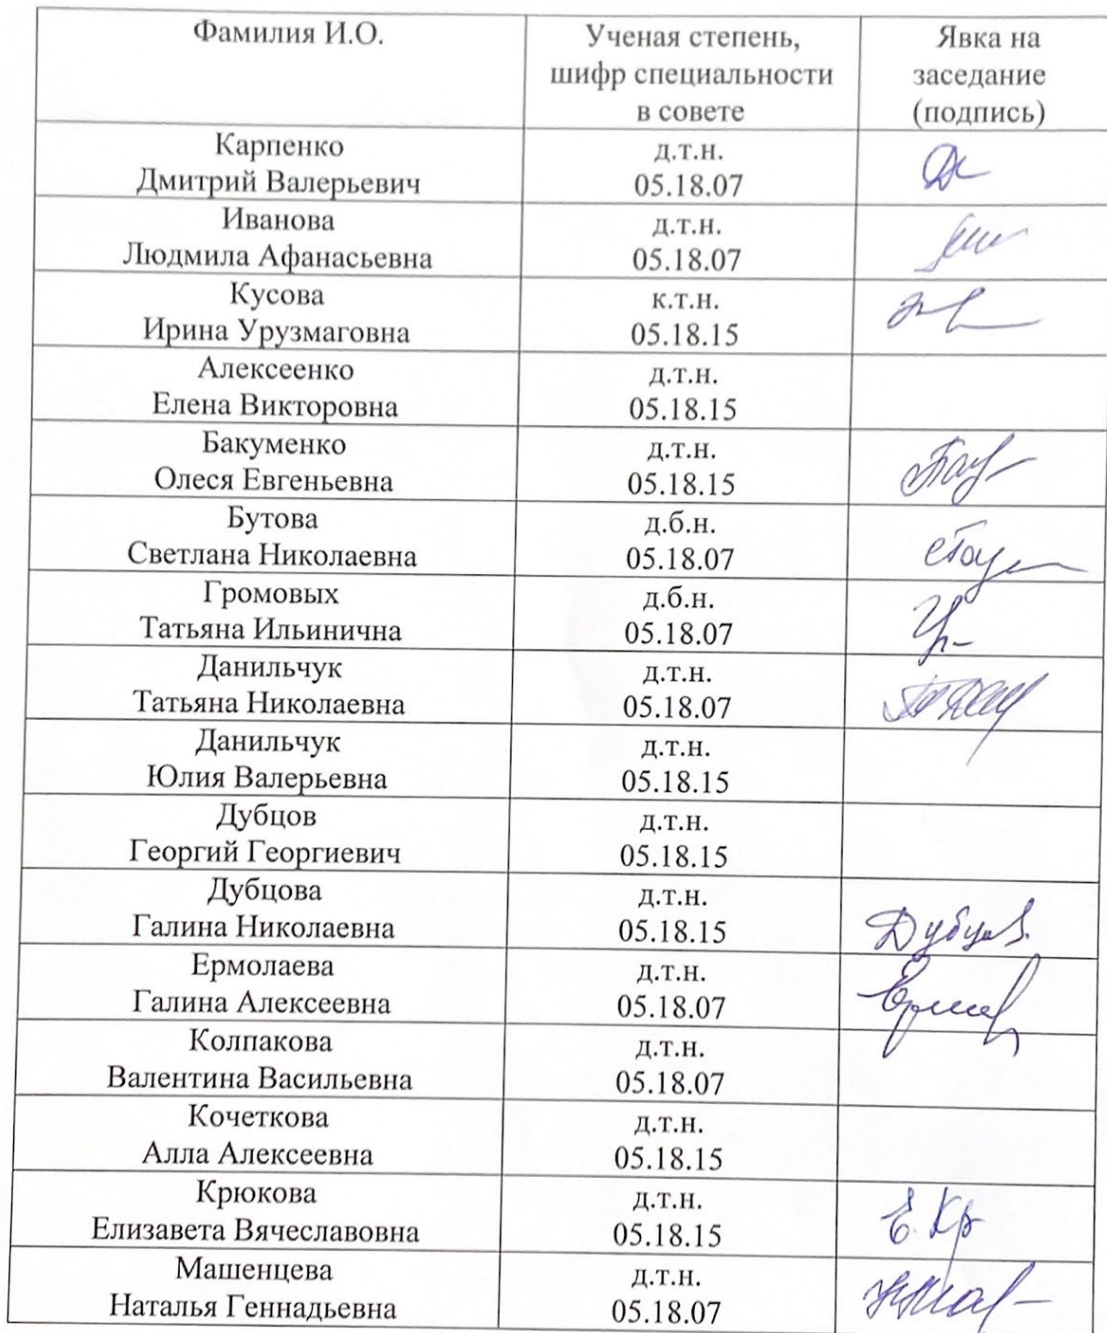 Фамилия И.О.
Ученая степень,
шифр специальности
в совете
Явка на
заседание
(подпись)
Карпенко
Дмитрий Валерьевич
д.т.н.
05.18.07
Иванова
Людмила Афанасьевна
д.т.н.
05.18.07
Кусова
Ирина Урузмаговна
к.т.н.
05.18.15
Алексеенко
Елена Викторовна
д.т.н.
05.18.15
Бакуменко
Олеся Евгеньевна
д.т.н.
05.18.15
Бутова
Светлана Николаевна
д.б.н.
05.18.07
Громовых
Татьяна Ильинична
д.б.н.
05.18.07
Данильчук
Татьяна Николаевна
д.т.н.
05.18.07
Данильчук
Юлия Валерьевна
д.т.н.
05.18.15
Дубцов
Георгий Георгиевич
д.т.н.
05.18.15
Дубцова
Галина Николаевна
д.т.н.
05.18.15
Ермолаева
Галина Алексеевна
д.т.н.
05.18.07
Колпакова
Валентина Васильевна
д.т.н.
05.18.07
Кочеткова
Алла Алексеевна
д.т.н.
05.18.15
Крюкова
Елизавета Вячеславовна
д.т.н.
05.18.15
Е. Кр
Машенцева
Наталья Геннадьевна
д.т.н.
05.18.07